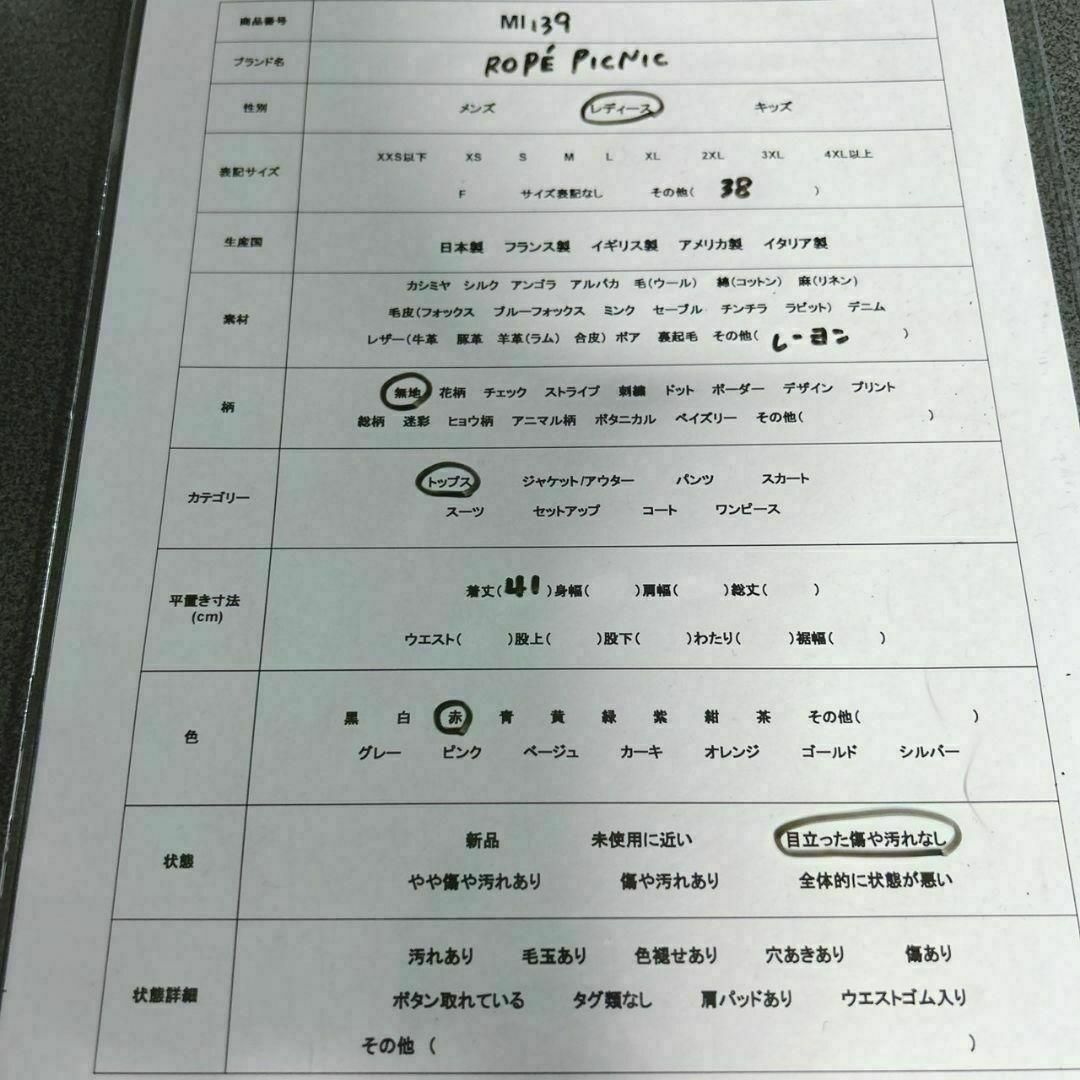 商品番号 MI139
ブランド名 ROPÉ PICNIC
性別 メンズ レディース キッズ
表記サイズ
XXS以下 XS S M L XL 2XL 3XL 4XL以上
F サイズ表記なし その他( 38 )
生産国 日本製 フランス製 イギリス製 アメリカ製 イタリア製
素材
カシミヤ シルク アンゴラ アルパカ 毛(ウール) 綿(コットン) 麻(リネン)
毛皮(フォックス ブルーフォックス ミンク セーブル チンチラ ラビット) デニム
レザー(牛革 豚革 羊革(ラム) 合皮) ボア 裏起毛 その他( レーヨン )
柄
無地 花柄 チェック ストライプ 刺繍 ドット ボーダー デザイン プリント
総柄 迷彩 ヒョウ柄 アニマル柄 ボタニカル ペイズリー その他( )
カテゴリー
トップス ジャケット/アウター パンツ スカート
スーツ セットアップ コート ワンピース
平置き寸法
(cm)
着丈( 41 )身幅( )肩幅( )総丈( )
ウエスト( )股上( )股下( )わたり( )裾幅( )
色
黒 白 赤 青 黄 緑 紫 紺 茶 その他( )
グレー ピンク ベージュ カーキ オレンジ ゴールド シルバー
状態
新品 未使用に近い 目立った傷や汚れなし
やや傷や汚れあり 傷や汚れあり 全体的に状態が悪い
状態詳細
汚れあり 毛玉あり 色褪せあり 穴あきあり 傷あり
ボタン取れている タグ類なし 肩パッドあり ウエストゴム入り
その他 ( )